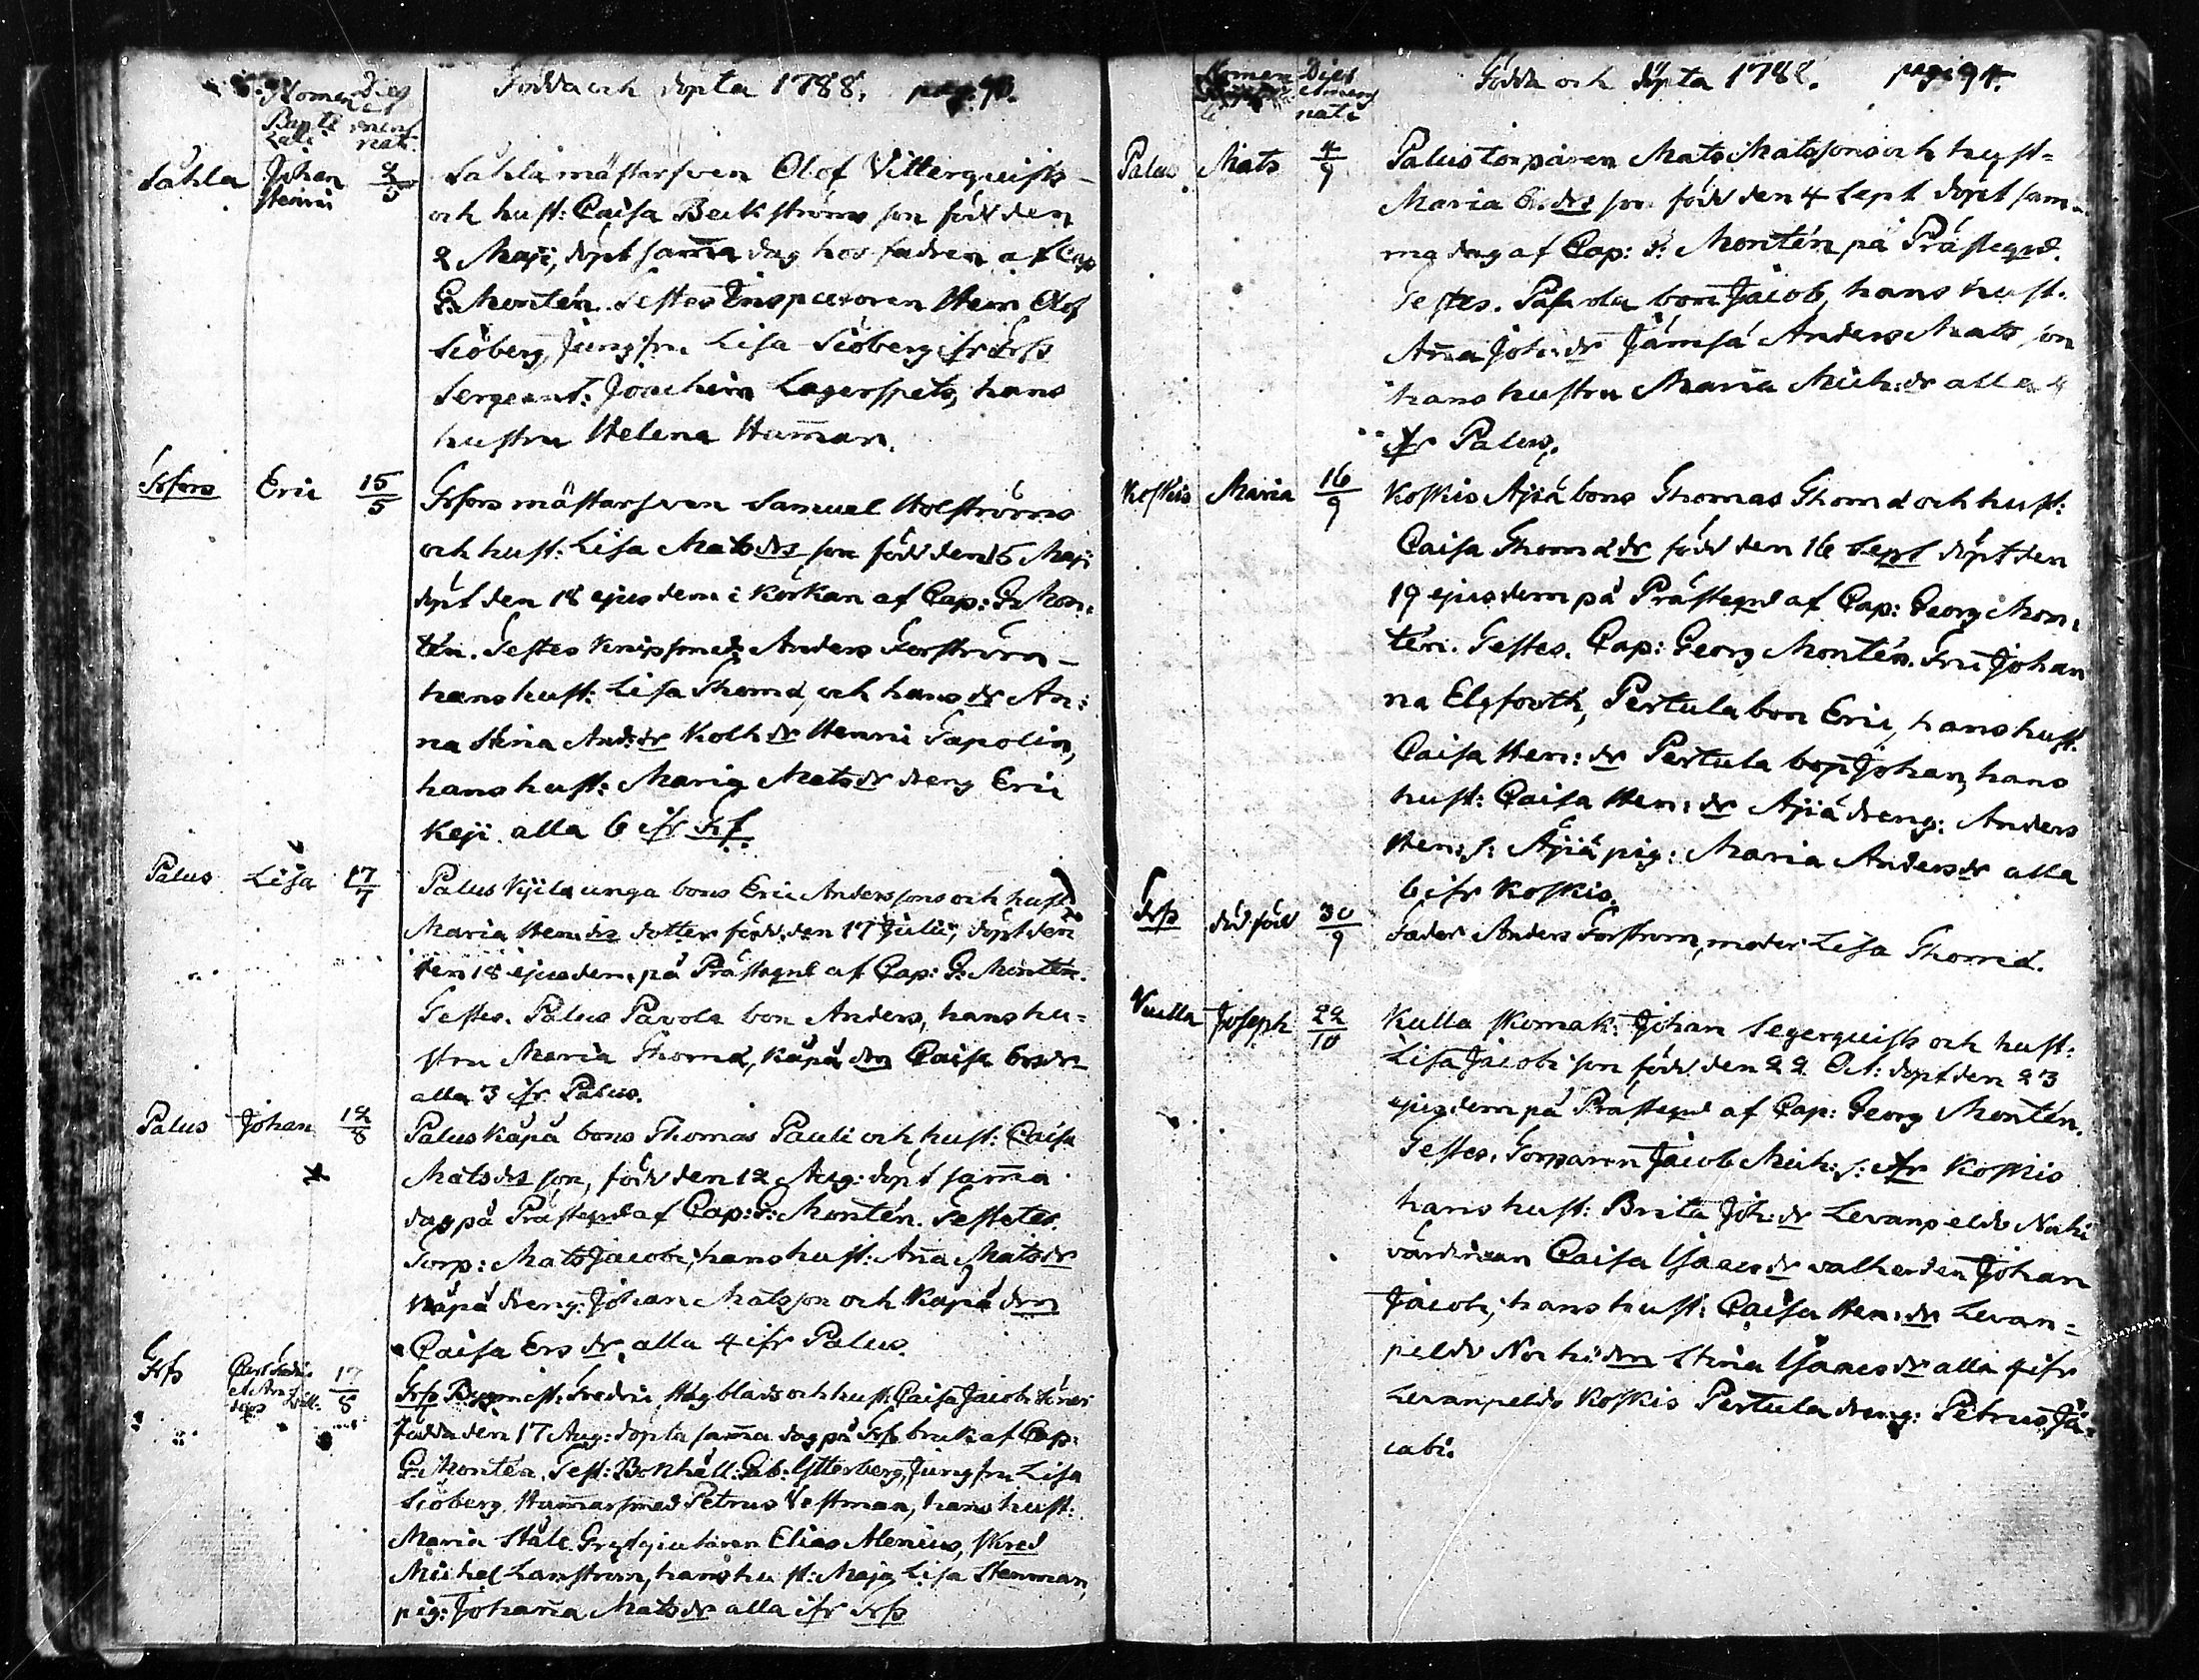 Födda och döpta 1788. pag: 90.
Nomen Dies
Bapti mens
zati nati
Sahla Johan 2/5 Sahla mästarsven Olof Vitterquists
Henric och hust: Caisa Beckströms son född den
2 Maji, döpt samma dag hos fadren af Cap
G: Montén. Testes Inspectoren Herr Olof
Siöberg, Jungfru Lisa Siöberg ifr Frfss
Sergeant: Joachim Lagerspets, hans
hustru Helena Hamman.
Frfors Eric 15/5 Frfors mästarsven Samuel Holströms
och hust: Lisa Matsdr son född den 15 Maji
döpt den 18 ejusdem i Körkan af Cap: G: Mon:
tén. Testes Knipsmed: Anders Forström
hans hust: Lisa Thomd, och hans dr An:
na Stina And:dr Kolk dr Henric Tapolin,
hans hust: Maria Matsdr dreng Eric
Keji alla 6 ifr Frf.
Palus Lisa 17/7 Palus Kyilä unga bons Eric Anderssons och hust
Maria Hen:dr dotter född den 17 Julii, döpt den
den 18 ejusdem på Prästegrd af Cap: G: Montén.
Testes. Palus Pavola bon Anders, hans hu=
stru Maria Thomd, Käpä drn Caisa Ersdr
alla 3 ifr Palus.
Palus Johan 12/8 Palus Käpä bons Thomas Pauli och hust: Caisa
Matsdr son, född den 12 Aug: döpt samma
dag på Prästegrd af Cap: G: Montén. Testetes.
Torp: Mats Jacobi, hans hust: Anna Matsdr
Käpä dreng: Johan Matsson och Käpä drn
Caisa Ersdr alla 4 ifr Palus.
Frfs 17/8 Frfs Bygmest: Fredric Högblads och hust Caisa Jacobi
födda den 17 Aug: döpta samma dag på Frfs bruk af Cap:
G: Montén. Test: Bokhåll: Gab: Ytterberg, Jungfru Lisa
Siöberg. Hammarsmed Petrus Vestman, hans hust:
Maria Ståle. Grytgiutaren Elias Alenius, skred
Michel Lanström, hans hust: Maja Lisa Stenman,
pig: Johanna Matsdr alla ifr Frfs
Födda och döpta 1788. pag: 91.
Nomen Dies
et mens
nati
Palus Mats 4/9 Palus torparen Mats Matssons och hust=
Maria E:dr son född den 4 Sept döpt sam=
ma dag af Cap: G: Montén på Prästegrd.
Testes. Pavola bon Jacob, hans hust:
Anna Joh:dr Jämsä Anders Mats son
hans hustru Maria Mich:dr alla 4
ifr Palus.
Koskis Maria 16/9 Koskis Äjiä bons Thomas Thomd och hust:
Caisa Thomd dr född den 16 Sept döpt den
19 ejusdem på Prästegrd af Cap: Georg Mon:
tén. Testes. Cap: Georg Montén. Fru Johan
na Elgfooth, Pertula bon Eric, hans hust:
Caisa Hen: dr Pertula bon Johan, hans
hust: Caisa Hen: dr Äjiä dreng: Anders
Hen: s: Äjiä pig: Maria Andersdr alla
6 ifr Koskis.
Frfs död född 30/9 Fader Anders Forström, moder Lisa Thomd.
Kulla Joseph 22/10 Kulla skomak: Johan Segerquists och hust:
Lisa Jacobi son född den 22 Oct: döpt den 23
ejusdem på Prästegrd af Cap: Georg Montén.
Testes. Torparen Jacob Mich: s: ifr Koskis
hans hust: Brita Joh:dr Levanpeldo Nahi
värdinnan Caisa Isaacs dr valherden Johan
Jacobi, hans hust: Caisa Hen: dr Levan=
peldo Nahi drn Stina Isaacsdr alla 4 ifr
Levanpeldo Koskis Pertula dreng: Petrus Ja:
cobi.